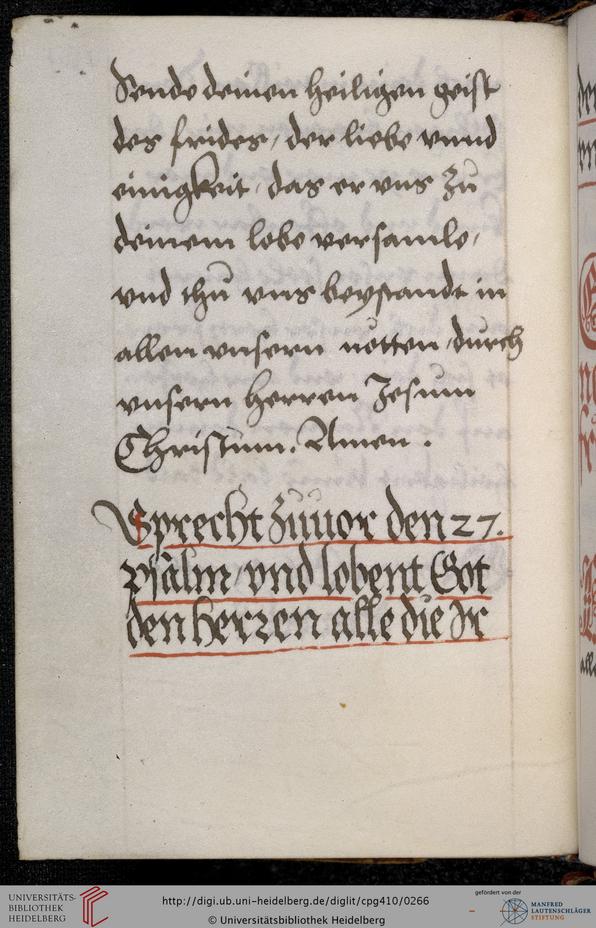 Sende deinen heiligen geist
des frides, der liebe vnnd
einigkeit, das er vns zŭ
deinem lobe versamle,
vnd thŭ vns beystandt in
allen vnsern nötten, durch
vnsern herren Jesum
Christŭm. Amen.
Sprecht zŭuor den 27.
psalm, vnd lobent Got
den herren alle die Ir
UNIVERSITÄTS-
BIBLIOTHEK
HEIDELBERG
http://digi.ub.uni-heidelberg.de/diglit/cpg410/0266
© Universitätsbibliothek Heidelberg
gefördert von der
MANFRED
LAUTENSCHLÄGER
STIFTUNG